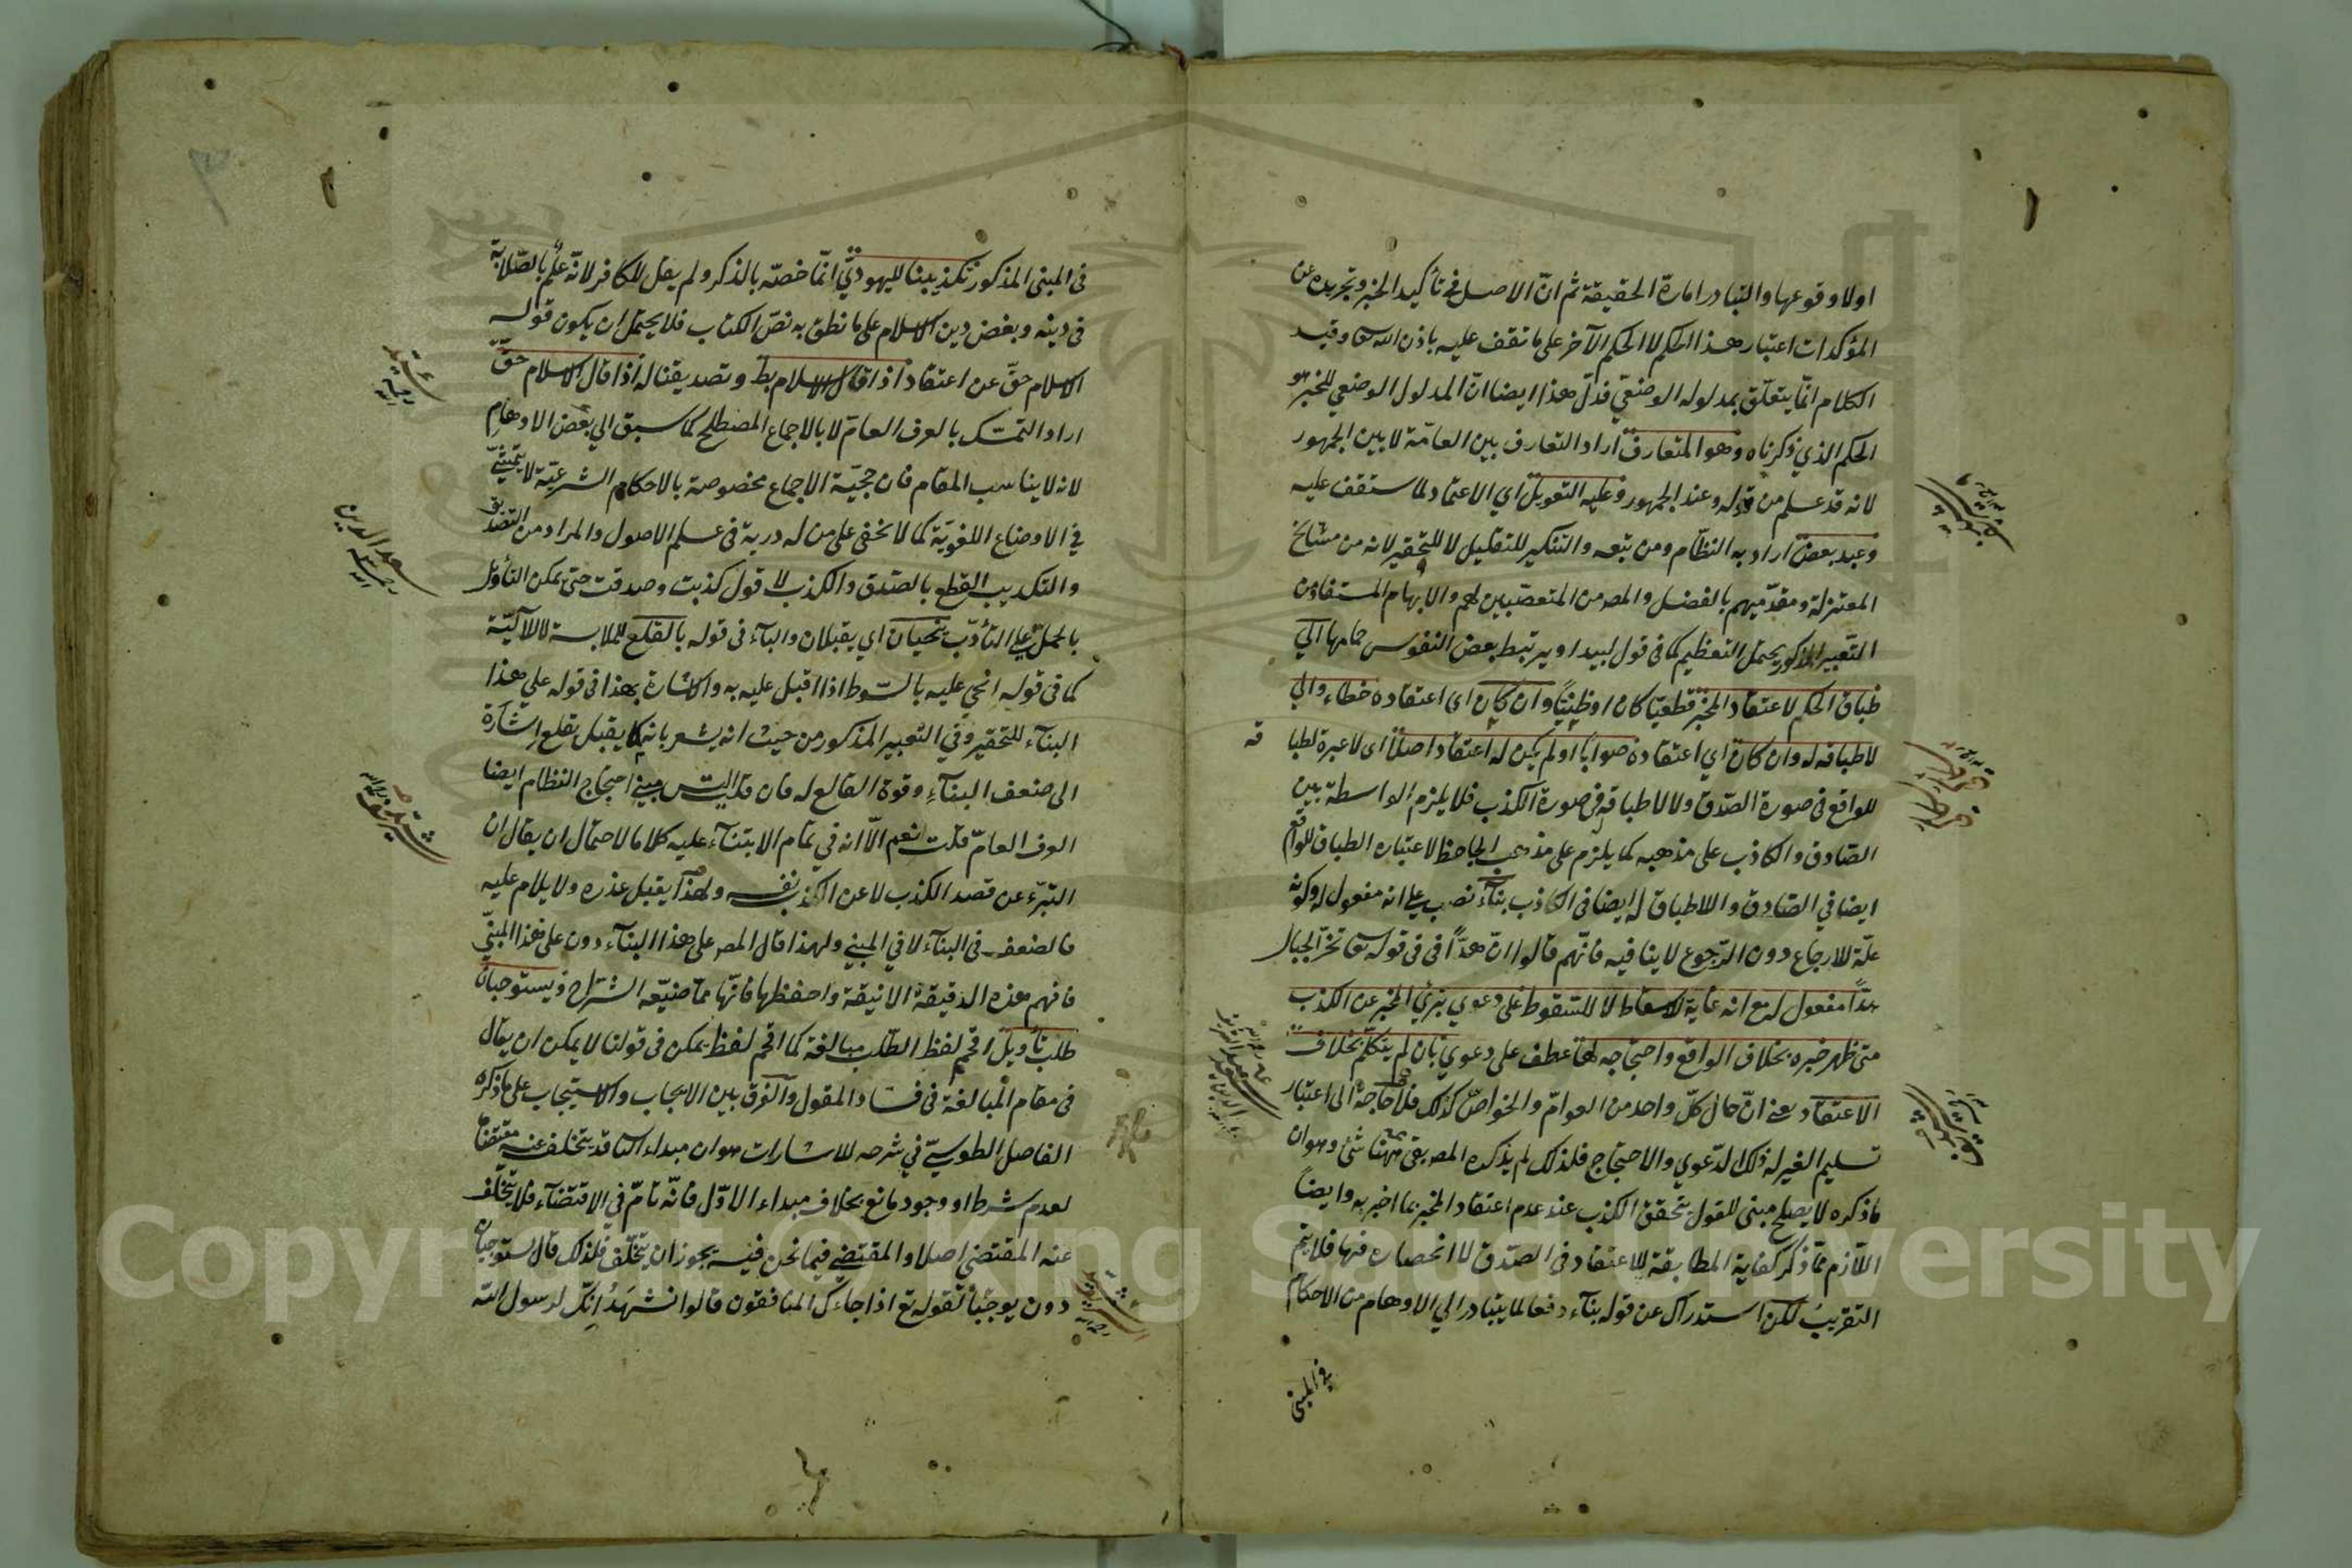 اولا وقوعها والتبادر امارة الحقيقة ثم انّ الاصل في تأكيد الخبر وتجريده عن
المؤكدات اعتبار هذا الحكم لا الحكم الآخر على ما تقف عليه باذن الله تعا وقيد
الكلام انّما يتعلّق بمدلوله الوضعي فدلّ هذا ايضا انّ المدلول الوضعي للخبر هو
الحكم الذي ذكرناه وهو المتعارف اراد التعارف بين العامّة لا بين الجمهور
لانه قد علم من قوله وعند الجمهور وعليه التعويل اي الاعتماد لما ستقف عليه
وعند بعض اراد به النظّام ومن تبعه والتنكير للتقليل لا للتحقير لانه من مشايخ
المعتزلة ومقدّميهم بالفضل والمص من المتعصّبين لهم والابهام المستفاد من
التعبير المذكور يحتمل التعظيم كما في قول لبيد او يرتبط بعض النفوس حمامها الي
طباق الحكم لاعتقاد المخبر قطعيّا كان او ظنيّا وان كان اى اعتقاده خطاء والي
لاطباقه له وان كان اي اعتقاده صوابا او لم يكن له اعتقاد اصلا اى لا عبرة لطبا
قه
للواقع في صورة الصّدق ولا لاطباقه في صورة الكذب فلا يلزم الواسطة بين
الصّادق والكاذب على مذهبه كما يلزم على مذهب الجاحظ لاعتباره الطباق للواقع
ايضا في الصّادق واللاطباق له ايضا في الكاذب بناء نصب علي انه مفعول له وكونه
علّة للارجاع دون الرّجوع لا ينافيه فانّهم قالوا انّ هدّا في قوله تعا تخرّ الجبال
هدّا مفعول له مع انه غاية للاسقاط لا للسقوط على دعوي تبرّي المخبر عن الكذب
متى ظهر خبره بخلاف الواقع واحتجاجه لها عطف على دعوي بان لم يتكلّم بخلاف
الاعتقاد يعني انّ حال كلّ واحد من العوامّ والخواصّ كذلك فلا حاجة الى اعتبار
تسليم الغير له ذلك الدّعوي والاحتجاج فلذلك لم يذكره المص بقي ههنا شئ وهوان
ماذكره لا يصلح مبنى للقول بتحقق الكذب عند عدم اعتقاد المخبر بما اخبر به وايضاً
اللّازم ممّا ذكر كفاية المطابقة للاعتقاد في الصّدق لا انحصاره فيها فلا يتم
التقريب لكن استدراك عن قوله بناء دفعا لما يتبادر الي الاوهام من الاحكام
في المبنى
في المبنى المذكور تكذيبنا لليهوديّ انّما خصّه بالذكر ولم يقل للكافر لانّه علم بالصّلابة
في دينه وبغض دين الاسلام على ما نطق به نصّ الكتاب فلا يحتمل ان يكون قوله
الاسلام حقّ عن اعتقاد اذا قال الاسلام بط وتصديقنا له اذا قال الاسلام حقّ
اراد التمسّك بالعرف العامّ لا بالاجماع المصطلح كما سبق الي بعض الاوهام
لانه لا يناسب المقام فان حجيّة الاجماع مخصوصة بالاحكام الشرعيّة لا يتمشّي
في الاوضاع اللغويّة كما لا يخفى على من له دربة في علم الاصول والمراد من التصديق
والتكذيب القطع بالصّدق والكذب لا قول كذبت وصدقت حتى يمكن التأويل
بالحمل علي التأدّب ينحيان اي يقبلان والباء في قوله بالقلع للملابسة لا للآليّة
كما في قوله انحي عليه بالسّوط اذا اقبل عليه به والاشارة بهذا في قوله علي هذا
البناء للتحقير وفي التعبير المذكور من حيث انه يشعر بانه كما يقبل يقلع اشارة
الى ضعف البناء وقوة القالع له فان قلت اليس مبنى احتجاج النظام ايضا
العرف العامّ قلت نعم الّا انه في تمام الابتناء عليه كلاما لاحتمال ان يقال ان
التبرّء عن قصد الكذب لا عن الكذب نفسه ولهذا يقبل عذره ولا يلام عليه
فالضعف في البناء لا في المبني ولهذا قال المص على هذا البناء دون على هذا المبنيّ
فافهم هذه الدقيقة الانيقة واحفظها فانّها ممّا ضيّعه الشرّاح ويستوجبان
طلب تأويل اقحم لفظ الطّلب مبالغة كما اقحم لفظ يمكن في قولنا لا يمكن ان يقال
في مقام المبالغة في فساد المقول والفرق بين الايجاب والاستيجاب على ما ذكره
الفاضل الطوسيّ في شرحه للاشارات هوان مبداء الثا قد يتخلف عنه مقتضاه
لعدم شرط او وجود مانع بخلاف مبداء الاوّل فانّه تامّ في الاقتضاء فلا يتخلّف
عنه المقتضى اصلا والمقتضي فيما نحن فيه يجوز ان يتخلّف فلذلك قال يستوجبان
دون يوجبان لقوله تع اذا جاءك المنافقون قالوا نشهد انك لرسول الله